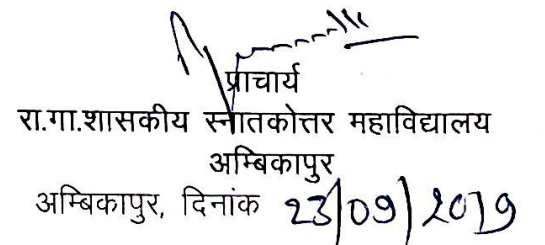 प्राचार्य
रा.गा.शासकीय स्नातकोत्तर महाविद्यालय
अम्बिकापुर
अम्बिकापुर, दिनांक 23/09/2019